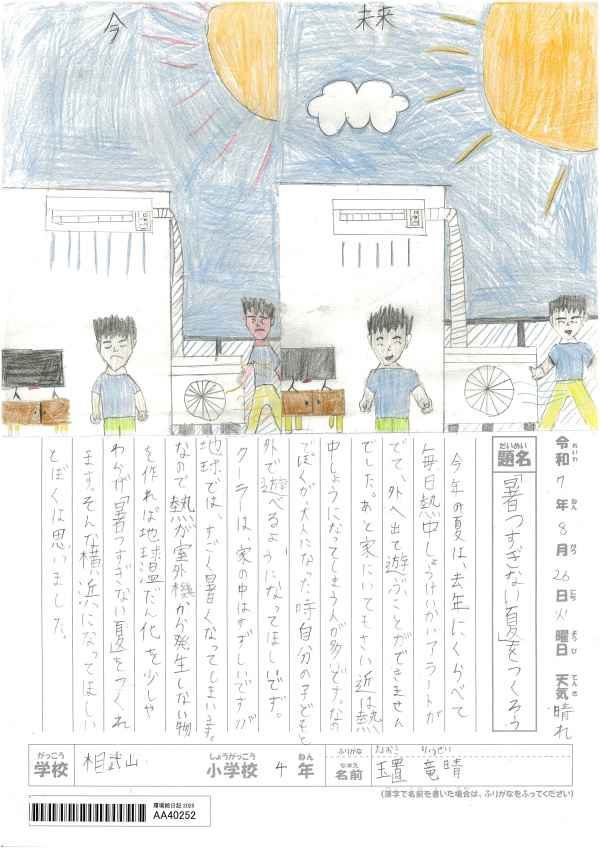 今
未来
れいわ ねん がつ にち ようび てんき
令和 7 年 8 月 26 日 火 曜日 天気 晴れ
だいめい
題名
「暑つすぎない夏」をつくろう
今年の夏は、去年にくらべて
毎日熱中しょうけいかいアラートが
でて、外へ出て遊ぶことができません
でした。あと家にいてもさい近は熱
中しょうになってしまう人が多いです。なの
でぼくが大人になった時自分の子どもと
外で遊べるようになってほしいです。
クーラーは、家の中はすずしいですが
地球では、すごく暑くなってしまいます。
なので熱が室外機から発生しない物
を作れば地球温だん化を少しや
わらげ「暑つすぎない夏」をつくれ
ます。そんな横浜になってほしい
とぼくは思いました。
がっこう しょうがっこう ねん
学校 相武山 小学校 4 年
ふりがな なおき りゅうせい
なまえ
名前 置 竜晴
(漢字で名前を書いた場合は、ふりがなをふってください)
環境絵日記 2025
AA40252